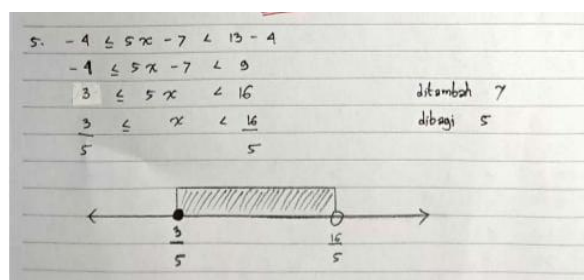 5. - 4 ≤ 5x - 7 < 13 - 4
- 4 ≤ 5x - 7 < 9
3 ≤ 5x < 16 ditambah 7
3/5 ≤ x < 16/5 dibagi 5
3/5 16/5